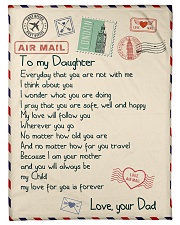 AIR MAIL
To my Daughter
Everyday that you are not with me
I think about you
I wonder what you are doing
I pray that you are safe, well and happy
My love will follow you
Wherever you go
No matter how old you are
And no matter how far you travel
Because I am your mother
and you will always be
my Child
my love for you is forever
Love, your Dad